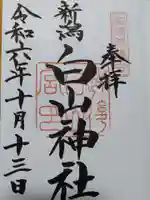 奉拝
新潟
白山神社
令和六年十月十三日